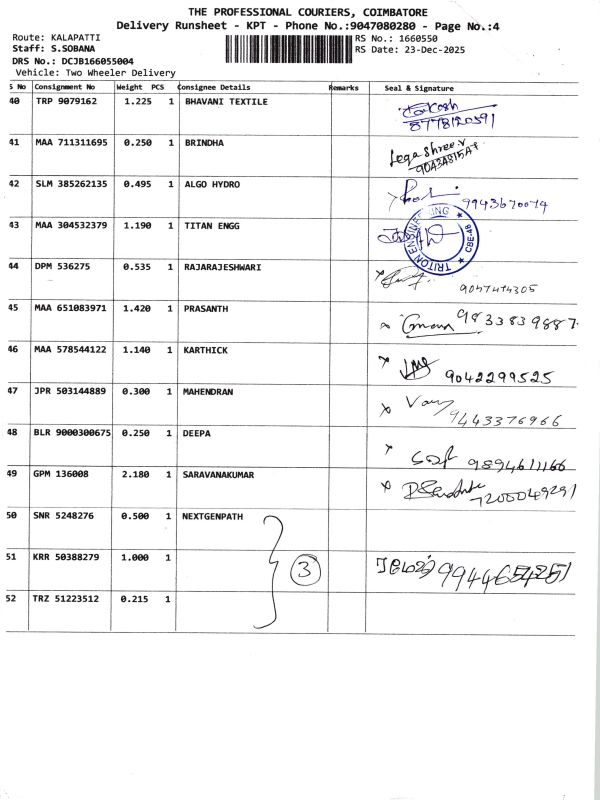 THE PROFESSIONAL COURIERS, COIMBATORE
Delivery Runsheet - KPT - Phone No.:9047080280 - Page No.:4
Route: KALAPATTI RS No.: 1660550
Staff: S.SOBANA RS Date: 23-Dec-2025
DRS No.: DCJB166055004
Vehicle: Two Wheeler Delivery
S No Consignment No Weight PCS Consignee Details Remarks Seal & Signature
40 TRP 9079162 1.225 1 BHAVANI TEXTILE
8778120591
41 MAA 711311695 0.250 1 BRINDHA
42 SLM 385262135 0.495 1 ALGO HYDRO
9943670074
43 MAA 304532379 1.190 1 TITAN ENGG
TRITON ENGINEERING ★ CBE-48 ★
44 DPM 536275 0.535 1 RAJARAJESHWARI
9047474305
45 MAA 651083971 1.420 1 PRASANTH
9833839887
46 MAA 578544122 1.140 1 KARTHICK
9042299525
47 JPR 503144889 0.300 1 MAHENDRAN
9443376966
48 BLR 9000300675 0.250 1 DEEPA
9894611166
49 GPM 136008 2.180 1 SARAVANAKUMAR
7200049291
50 SNR 5248276 0.500 1 NEXTGENPATH
51 KRR 50388279 1.000 1 3
52 TRZ 51223512 0.215 1